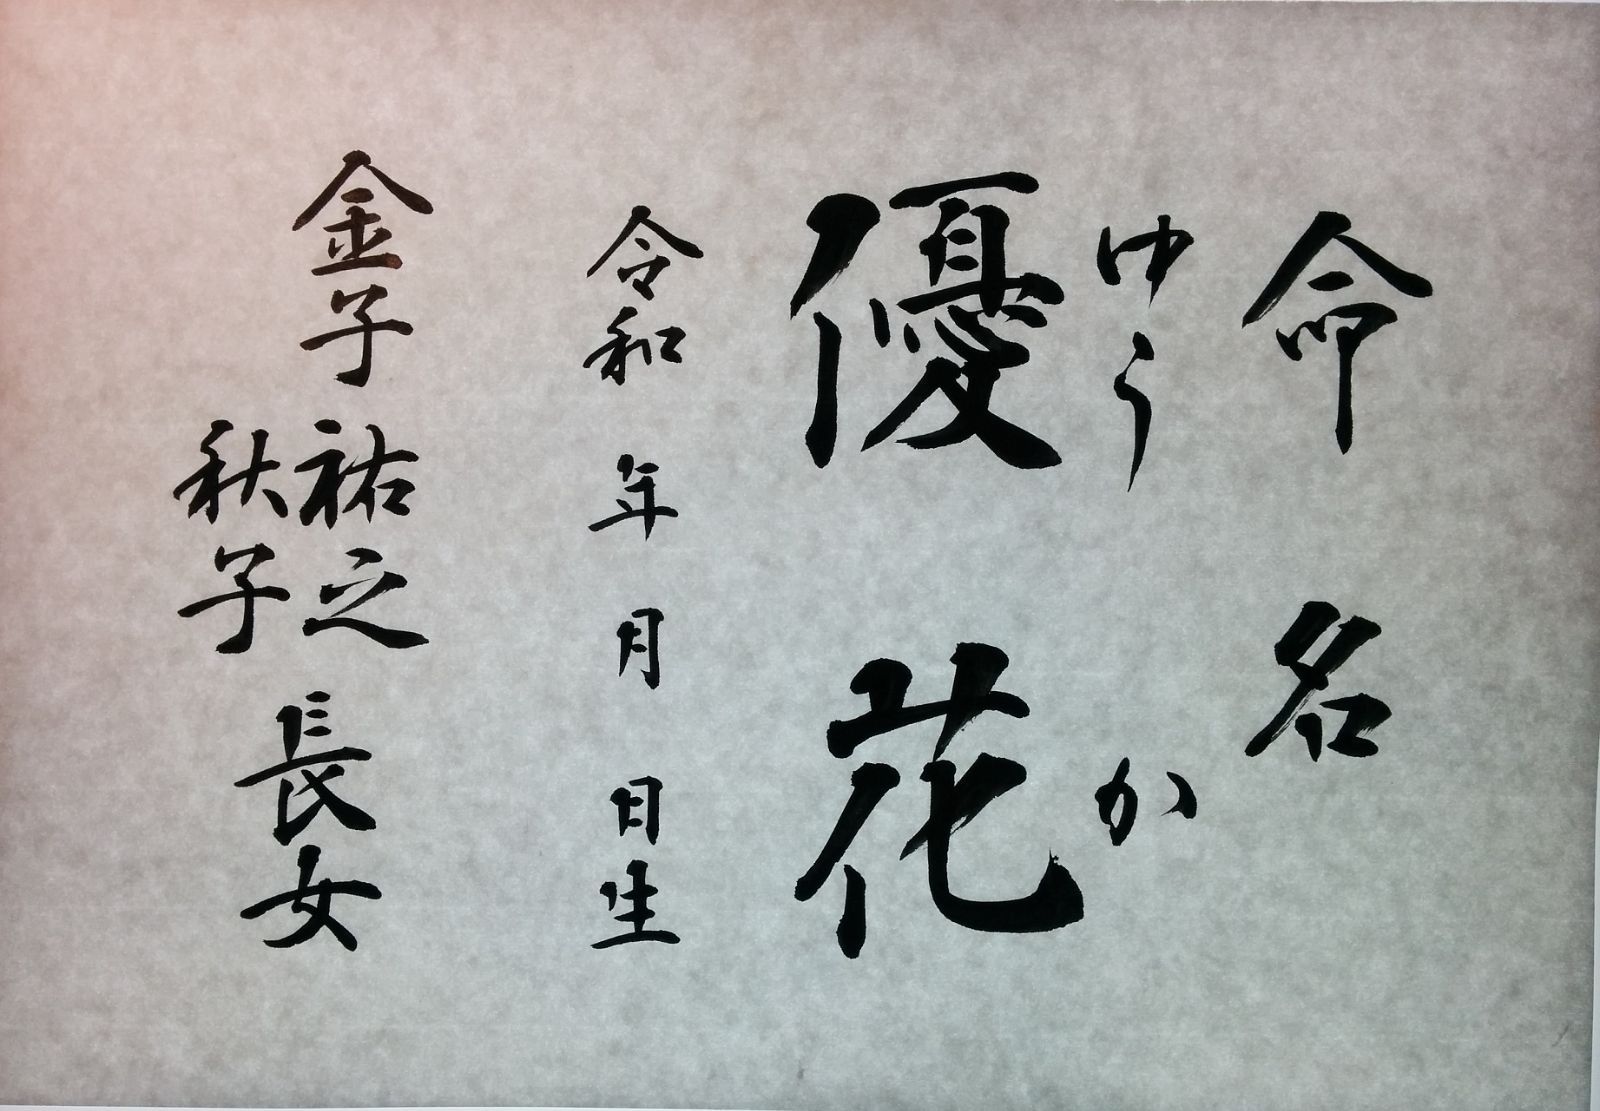 命名
ゆうか
優花
令和 年 月 日生
金子 祐之 長女
秋子